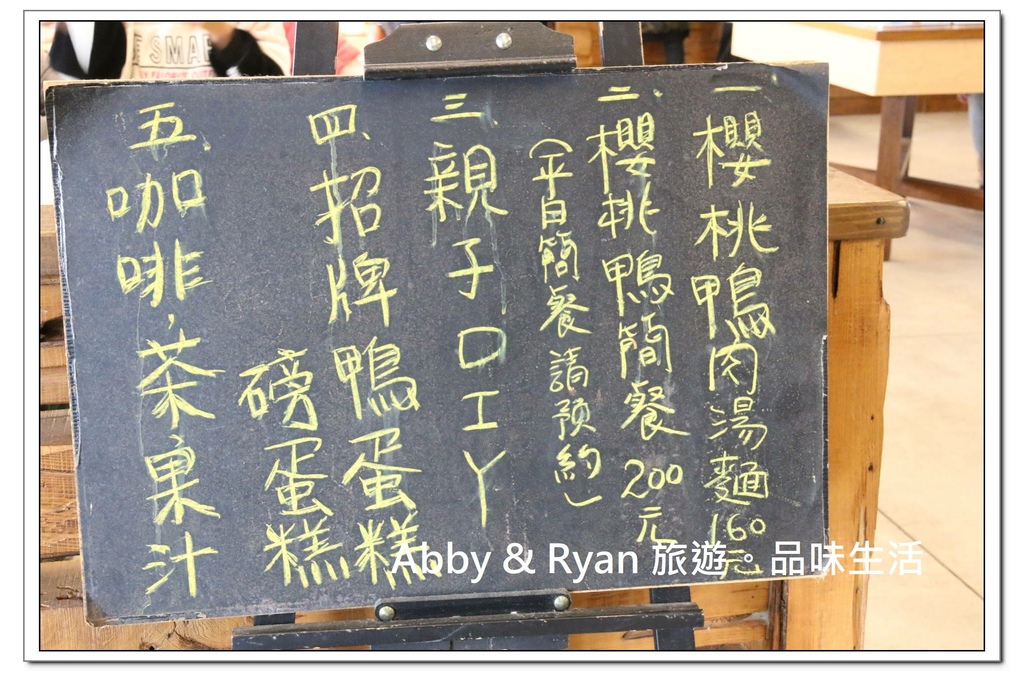 一、櫻桃鴨肉湯麵160元
二、櫻桃鴨簡餐200元
（平日簡餐請預約）
三、親子口工ㄚ
四、招牌鴨蛋糕
磅蛋糕
五、咖啡,茶果汁
Abby & Ryan 旅遊。品味生活
SMA